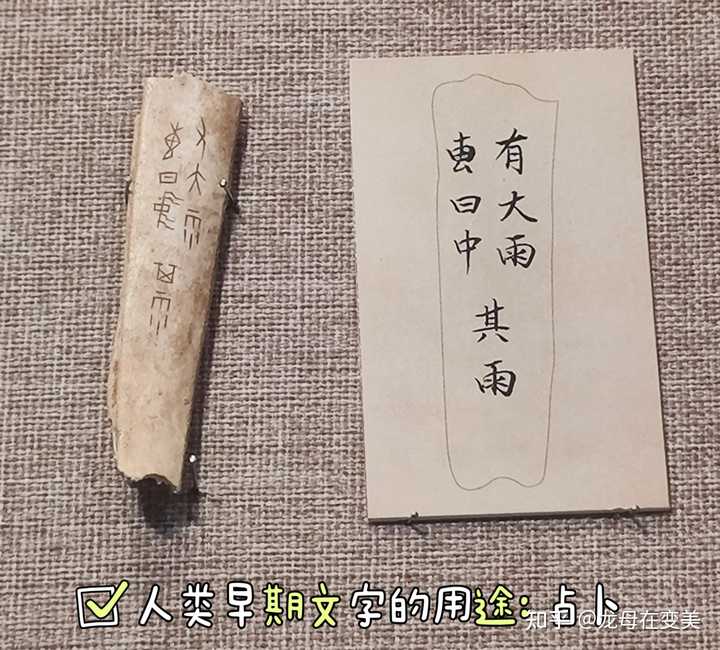 有大雨
叀曰中
其雨
人类早期文字的用途:占卜
知乎 @龙母在变美